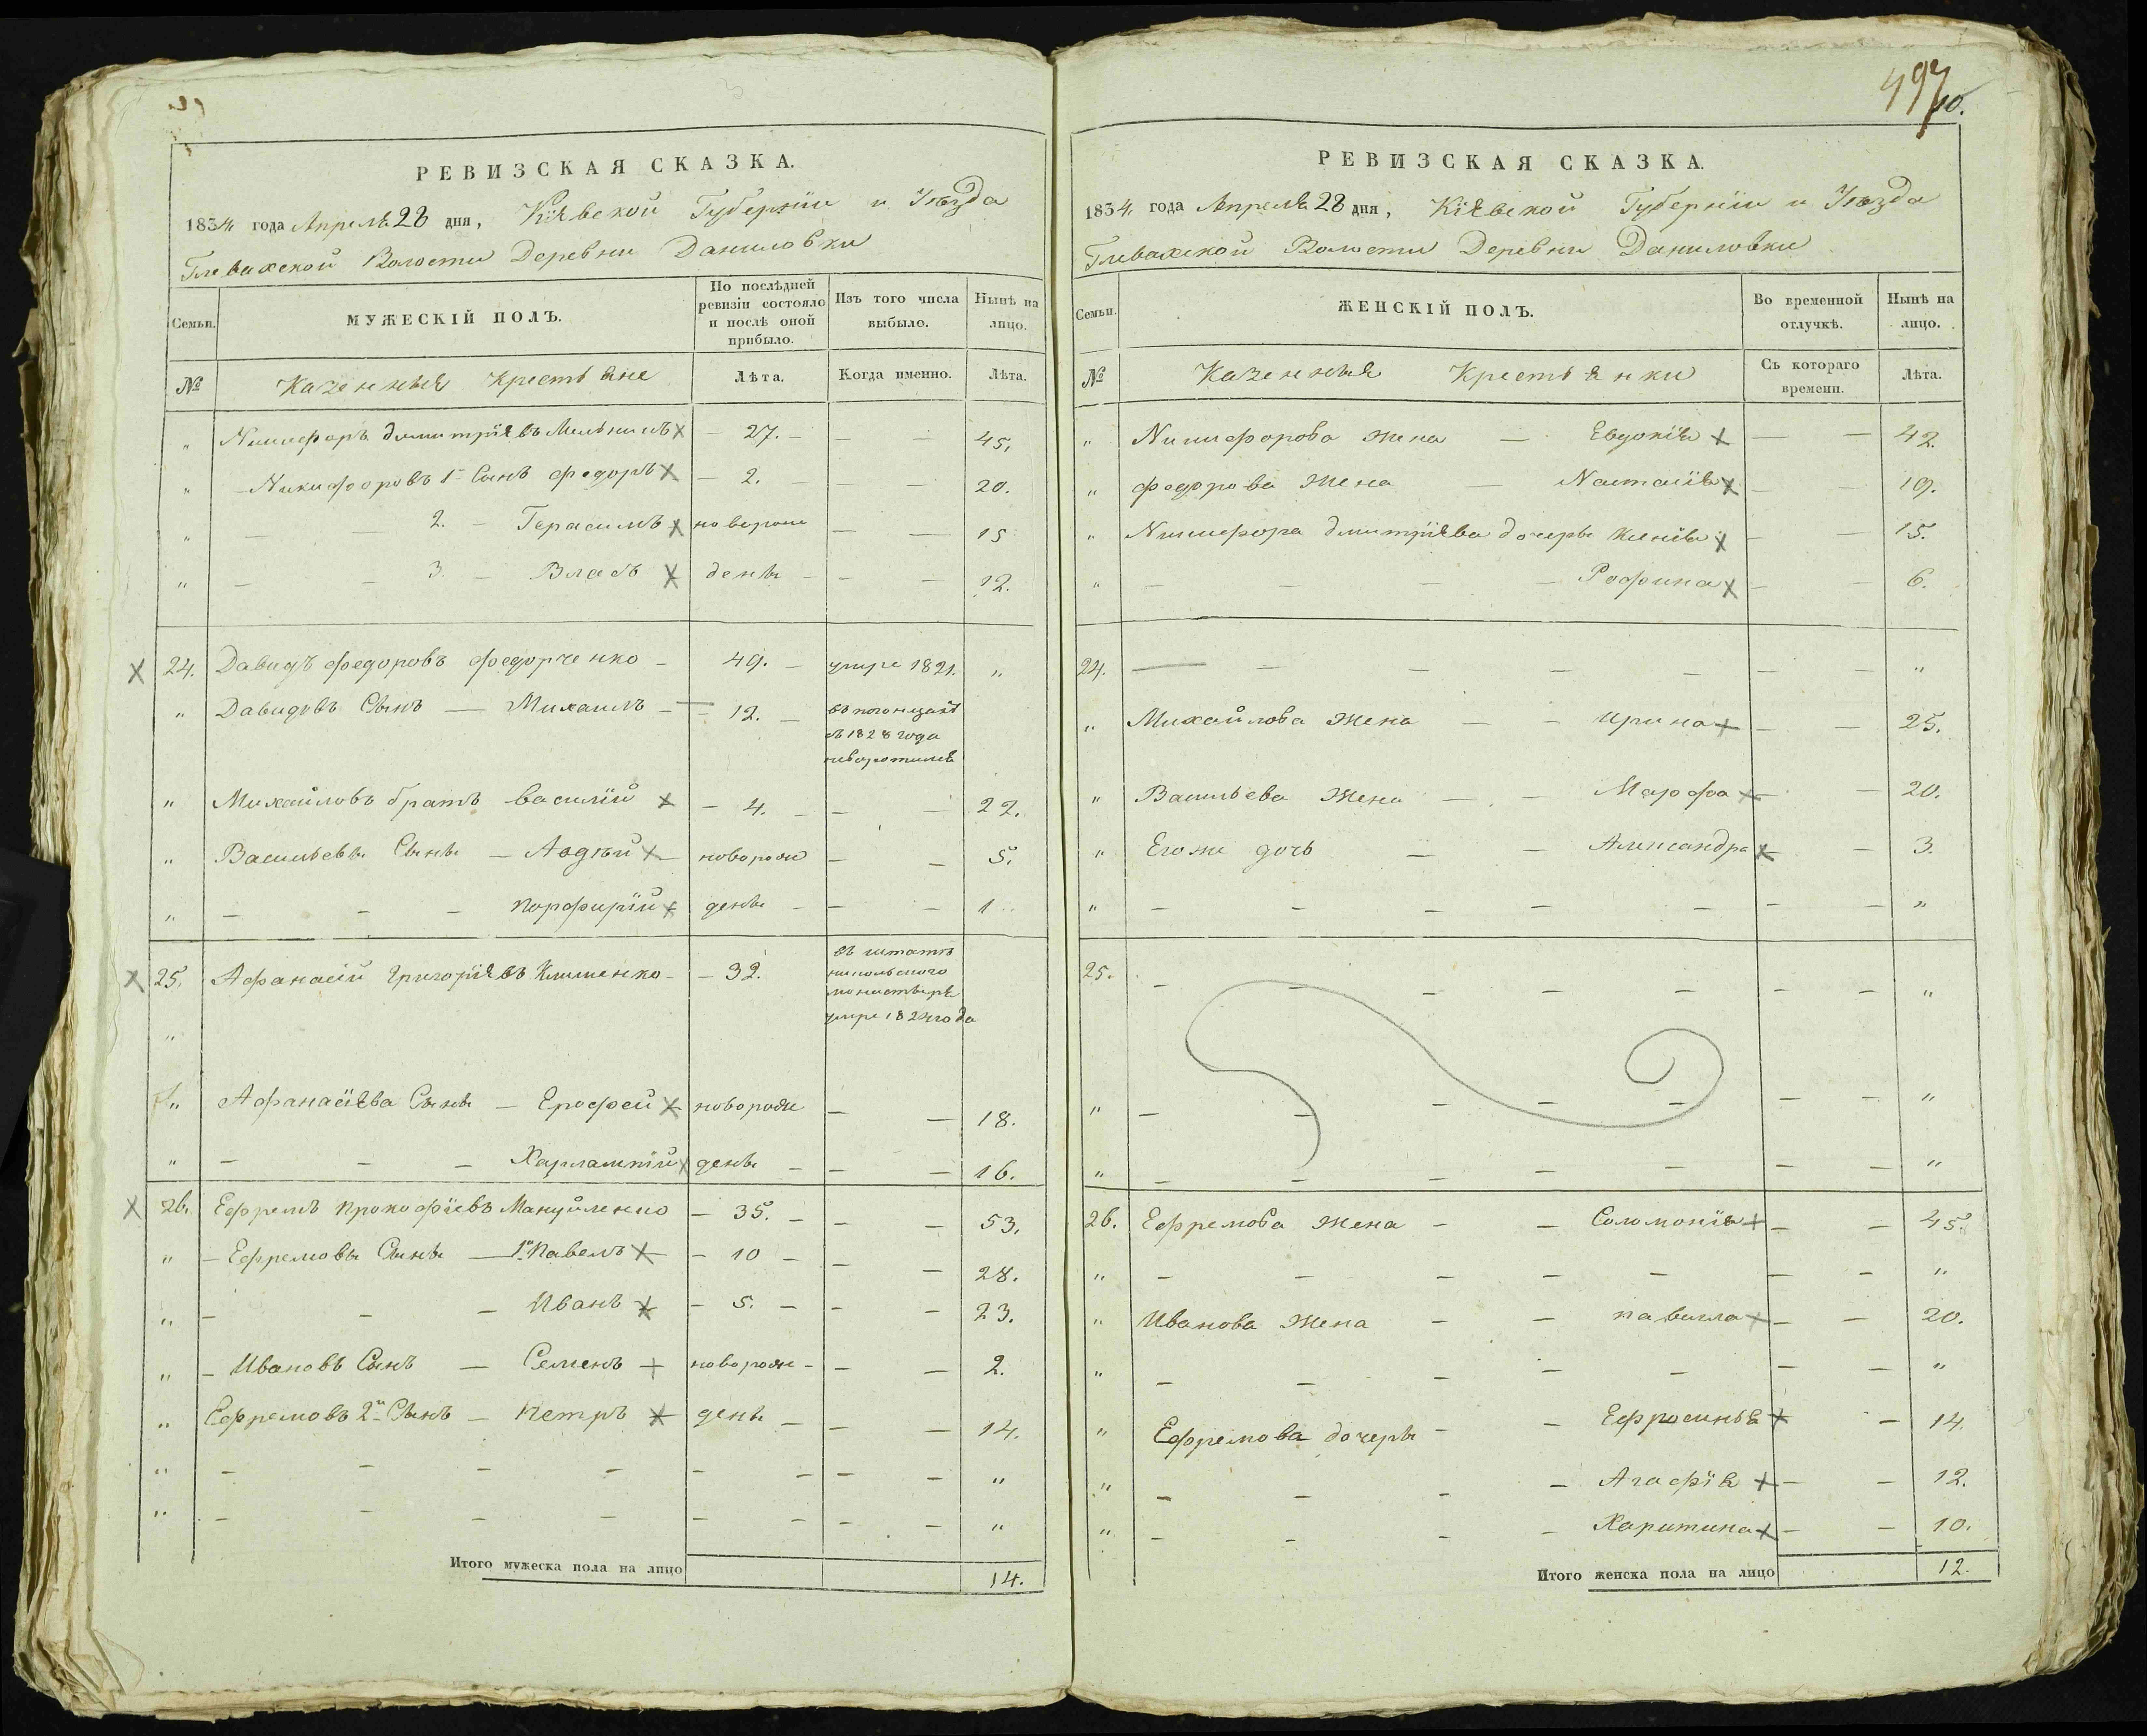 РЕВИЗСКАЯ СКАЗКА.
1834 года Апреля 28 дня, Кіевской Губерніи и Уѣзда
Глевахской Волости Деревни Даниловки
Семьи. МУЖЕСКІЙ ПОЛЪ. По послѣдней ревизіи состояло и послѣ оной прибыло. Изъ того числа выбыло. Нынѣ на лицо.
№ Казенныя крестьяне Лѣта. Когда именно. Лѣта.
" Никифоръ Димитріевъ Мельникъ - 27. - - - 45.
" - Никифоровъ 1й Сынъ Федоръ - 2. - - 20.
" - - 2. - Герасимъ новорож - - 15
" - - 3. - Власъ дены - - - 12.
24. Давидъ Федоровъ Федорченко - 49. - умре 1821. "
" Давидовъ Сынъ — Михаилъ - 12. -
съ 1828 года
" Михайловъ братъ василій - 4. - - - 22.
" Васильевы Сыны - Авдѣй новорож - - 5.
" - - - порфирій дены - - - 1
25. Афанасій Григоріевъ Клименко - - 32. въ штатѣ
никольского
монастыря
умре 1824 года
"
" Афанасіева Сыны - Ерофей новорож - - 18.
" - - - Харлампій дены - - - 16.
26. Ефремъ прокофіевъ Мануйленко - 35. - - - 53.
" - Ефремовы Сыны — 1й Павелъ - 10 - - - 28.
" - - - Иванъ - 5. - - - 23.
" - Ивановъ Сынъ — Семенъ новорож - - - 2.
" Ефремовъ 2й Сынъ - петръ дены - - - 14.
" - - - - - - - - "
" - - - - - - - - "
Итого мужеска пола на лицо 14.
497
10.
РЕВИЗСКАЯ СКАЗКА.
1834 года Апреля 28 дня, Кіевской Губерніи и Уѣзда
Глевахской Волости Деревни Даниловки
Семьи. ЖЕНСКІЙ ПОЛЪ. Во временной отлучкѣ. Нынѣ на лицо.
№ Казенныя Крестьянки Съ котораго времени. Лѣта.
" Никифорова Жена — Евдокія — — 42.
" Федорова Жена — Настасія - - 19.
" Никифора Дмитріева дочеры Ксенія - - 15.
" - - - - Рофина - - 6.
24. — - - - - - - "
" Михайлова Жена - - ирина - - 25.
" Васильева Жена - - Марфа - - 20.
" Егоже дочь - - Александра - 3.
" - - - - - - - "
25. - - - - - - - "
" - - - - - - - "
" - - - - - - - "
26. Ефремова Жена - - Соломонія - - 45.
" - - - - - - - "
" Иванова Жена - - павила - - 20.
" - - - - - - - "
" Ефремова дочеры - - Ефросинья - 14.
" - - - - Агафія - - 12.
" - - - - Харитина - - 10.
Итого женска пола на лицо 12.